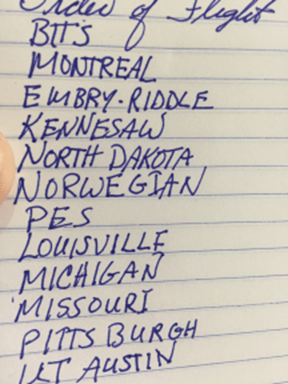 Order of Flight
BIT'S
MONTREAL
EMBRY-RIDDLE
KENNESAW
NORTH DAKOTA
NORWEGIAN
PES
LOUISVILLE
MICHIGAN
MISSOURI
PITTSBURGH
UT AUSTIN